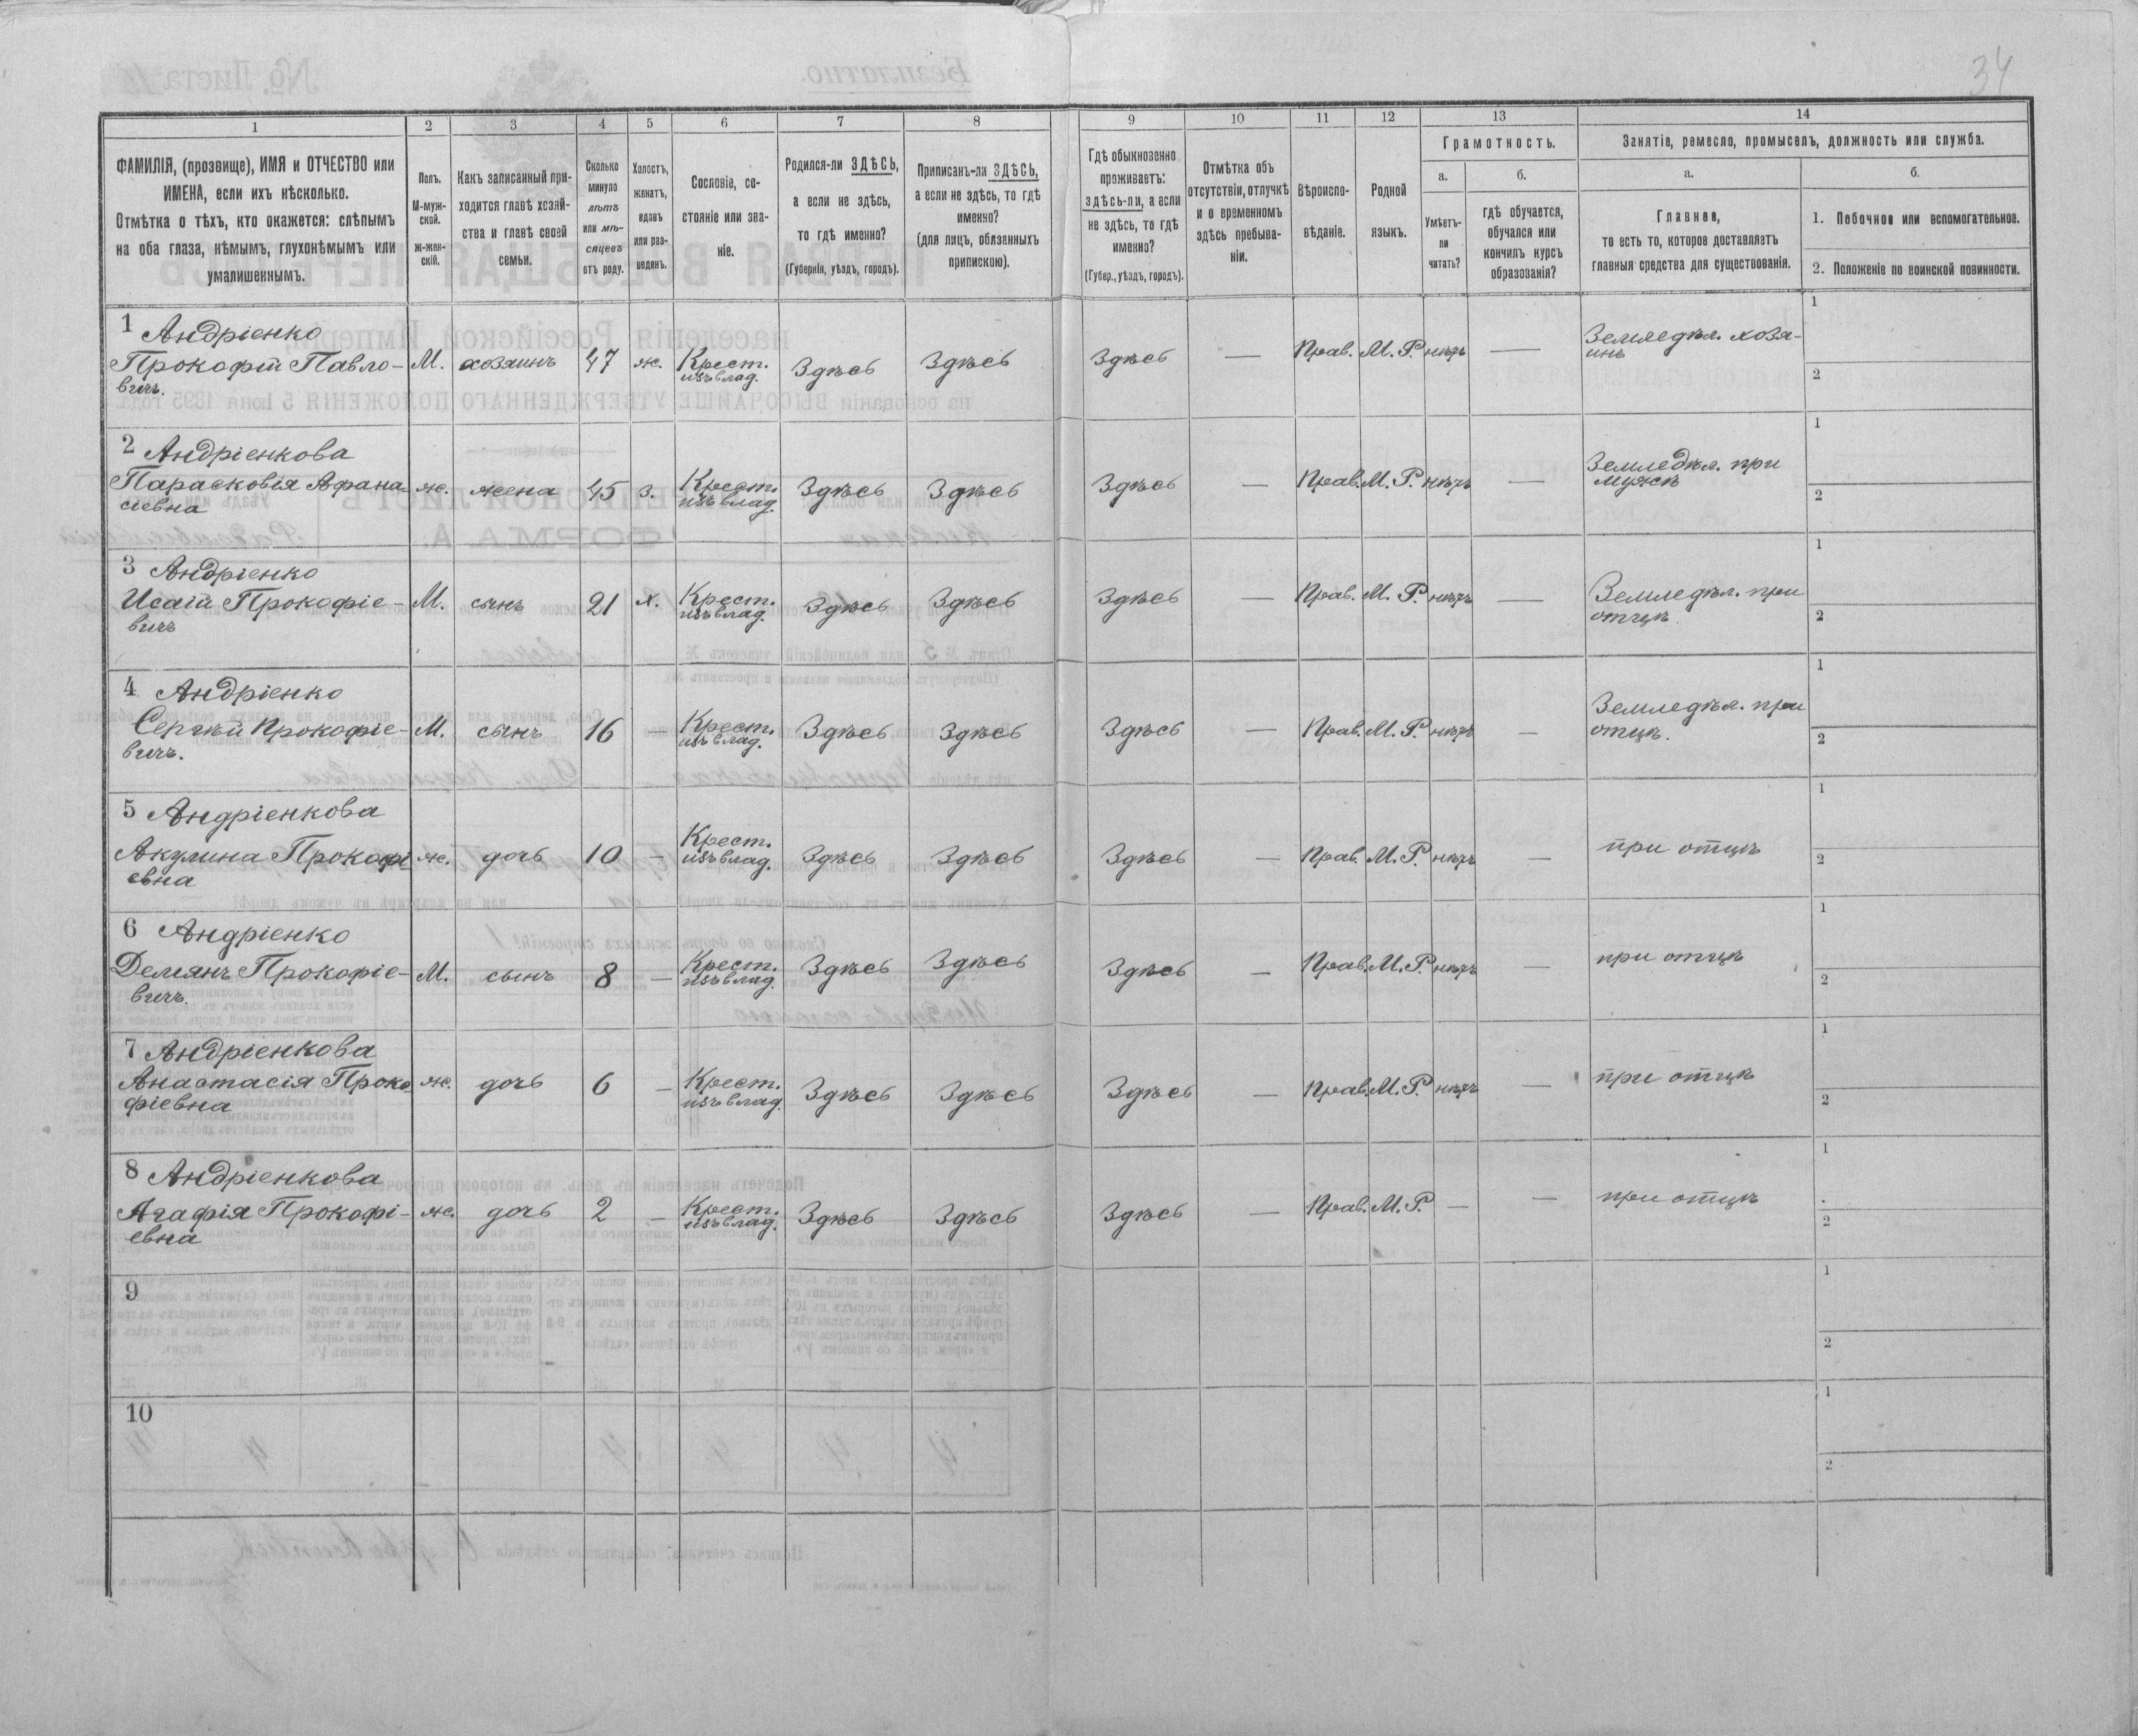 34
1 2 3 4 5 6 7 8 9 10 11 12 13 14
ФАМИЛІЯ, (прозвище), ИМЯ и ОТЧЕСТВО или
ИМЕНА, если ихъ нѣсколько.
Отмѣтка о тѣхъ, кто окажется: слѣпымъ
на оба глаза, нѣмымъ, глухонѣмымъ или
умалишеннымъ.
Полъ.
М-муж-
ской.
ж-жен-
скій.
Какъ записанный при-
ходится главѣ хозяй-
ства и главѣ своей
семьи.
Сколько
минуло
лѣтъ
или мѣ-
сяцевъ
отъ роду.
Холостъ,
женатъ,
вдовъ
или раз-
веденъ.
Сословіе, со-
стояніе или зва-
ніе.
Родился-ли ЗДѢСЬ,
а если не здѣсь,
то гдѣ именно?
(Губернія, уѣздъ, городъ).
Приписанъ-ли ЗДѢСЬ,
а если не здѣсь, то гдѣ
именно?
(для лицъ, обязанныхъ
припискою).
Гдѣ обыкновенно
проживаетъ:
здѣсь-ли, а если
не здѣсь, то гдѣ
именно?
(Губер., уѣздъ, городъ).
Отмѣтка объ
отсутствіи, отлучкѣ
и о временномъ
здѣсь пребыва-
ніи.
Вѣроиспо-
вѣданіе.
Родной
языкъ.
Грамотность.
а.
Умѣетъ-
ли
читать?
б.
гдѣ обучается,
обучался или
кончилъ курсъ
образованія?
Занятіе, ремесло, промыселъ, должность или служба.
а.
Главное,
то есть то, которое доставляетъ
главныя средства для существованія.
б.
1. Побочное или вспомогательное.
2. Положеніе по воинской повинности.
1 Андріенко
Прокофій Павло-
вичъ.
М. хозяинъ 47 ж. Крест.
изъ влад.
Здѣсь Здѣсь Здѣсь — Прав. М. Р. нѣтъ —
Земледѣл. хозя-
инъ
1
2
2 Андріенкова
Парасковія Афана-
сіевна
ж. жена 45 з. Крест.
изъ влад.
Здѣсь Здѣсь Здѣсь — Прав. М. Р. нѣтъ —
Земледѣл. при
мужѣ
1
2
3 Андріенко
Исаій Прокофіе-
вичъ
М. сынъ 21 х. Крест.
изъ влад.
Здѣсь Здѣсь Здѣсь — Прав. М. Р. нѣтъ —
Земледѣл. при
отцѣ
1
2
4 Андріенко
Сергѣй Прокофіе-
вичъ.
М. сынъ 16 — Крест.
изъ влад.
Здѣсь Здѣсь Здѣсь — Прав. М. Р. нѣтъ —
Земледѣл. при
отцѣ.
1
2
5 Андріенкова
Акулина Прокофі-
евна
ж. дочь 10 — Крест.
изъ влад.
Здѣсь Здѣсь Здѣсь — Прав. М. Р. нѣтъ —
при отцѣ
1
2
6 Андріенко
Демянъ Прокофіе-
вичъ.
М. сынъ 8 — Крест.
изъ влад.
Здѣсь Здѣсь Здѣсь — Прав. М. Р. нѣтъ —
при отцѣ
1
2
7 Андріенкова
Анастасія Проко-
фіевна
ж. дочь 6 — Крест.
изъ влад.
Здѣсь Здѣсь Здѣсь — Прав. М. Р. нѣтъ —
при отцѣ
1
2
8 Андріенкова
Агафія Прокофі-
евна
ж. дочь 2 — Крест.
изъ влад.
Здѣсь Здѣсь Здѣсь — Прав. М. Р. — —
при отцѣ
1
2
9
1
2
10
1
2